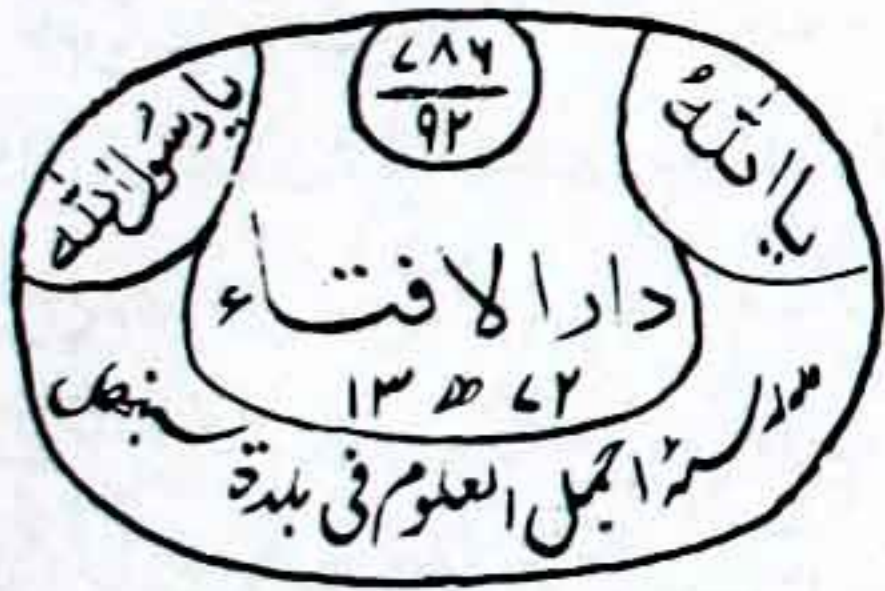 ۷۸۶
۹۲
یا اللہ
یا رسول اللہ
دار الافتاء
۱۳ ھ ۷۲
مدرسۃ اجمل العلوم فی بلدۃ سنبھل